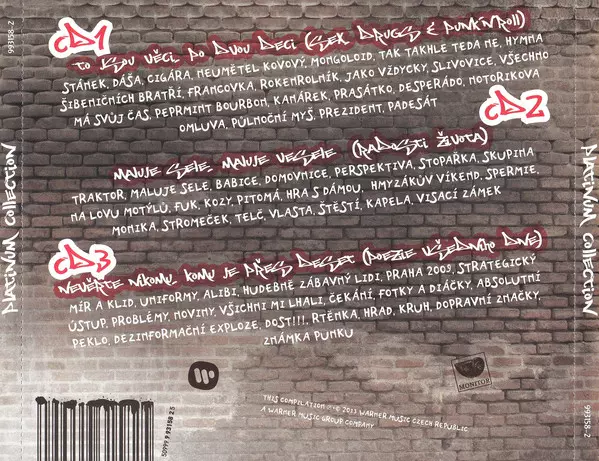 CD1
TO JSOU VĚCI, PO DVOU DECI (SEX, DRUGS & PUNK'N'ROLL)
STÁNEK, DÁŠA, CIGÁRA, NEUMĚTEL KOVOVÝ, MONGOLOID, TAK TAKHLE TEDA NE, HYMNA
ŠIBENIČNÍCH BRATŘÍ, FRANCOVKA, ROKENROLNÍK, JAKO VŽDYCKY, SLIVOVICE, VŠECHNO
MÁ SVŮJ ČAS, PEPRMINT BOURBON, KANÁREK, PRASÁTKO, DESPERÁDO, NOTORIKOVA
OMLUVA, PŮLNOČNÍ MYŠ, PREZIDENT, PADESÁT
CD2
MALUJE SELE, MALUJE VESELE (RADOSTI ŽIVOTA)
TRAKTOR, MALUJE SELE, BABICE, DOMOVNICE, PERSPEKTIVA, STOPAŘKA, SKUPINA
NA LOVU MOTÝLŮ, FUK, KOZY, PITOMÁ, HRA S DÁMOU, HMYZÁKŮV VÍKEND, SPERMIE,
MONIKA, STROMEČEK, TELČ, VLASTA, ŠTĚSTÍ, KAPELA, VISACÍ ZÁMEK
CD3
NEVĚŘTE NIKOMU, KOMU JE PŘES DESET (POEZIE VŠEDNÍHO DNE)
MÍR A KLID, UNIFORMY, ALIBI, HUDEBNĚ ZÁBAVNÝ LIDI, PRAHA 2003, STRATEGICKÝ
ÚSTUP, PROBLÉMY, NOVINY, VŠICHNI MI LHALI, ČEKÁNÍ, FOTKY A DIÁČKY, ABSOLUTNÍ
PEKLO, DEZINFORMAČNÍ EXPLOZE, DOST!!!, RTĚNKA, HRAD, KRUH, DOPRAVNÍ ZNAČKY,
ZNÁMKA PUNKU
THIS COMPILATION ℗ © 2013 WARNER MUSIC CZECH REPUBLIC
A WARNER MUSIC GROUP COMPANY
MONITOR
993158-2
PLATINUM COLLECTION
993158-2
PLATINUM COLLECTION
5 0999 9 93158 2 5